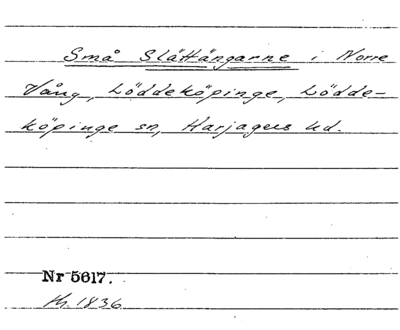 Små Slättängarne i Norre
Vång, Löddeköpinge, Lödde-
köpinge sn, Harjagers hd.
Nr 5617.
1836